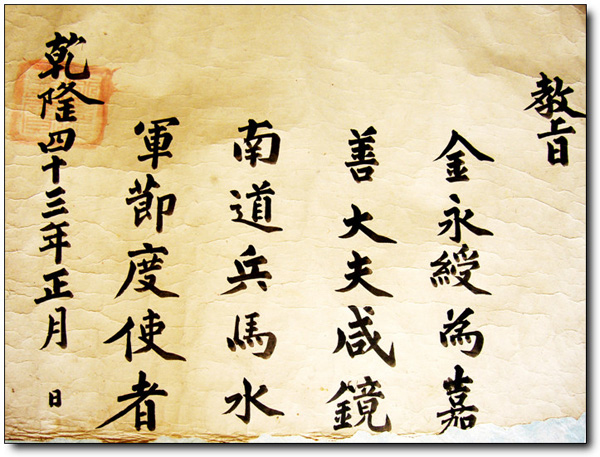 教旨
金永綬為嘉
善大夫咸鏡
南道兵馬水
軍節度使者
乾隆四十三年正月 日